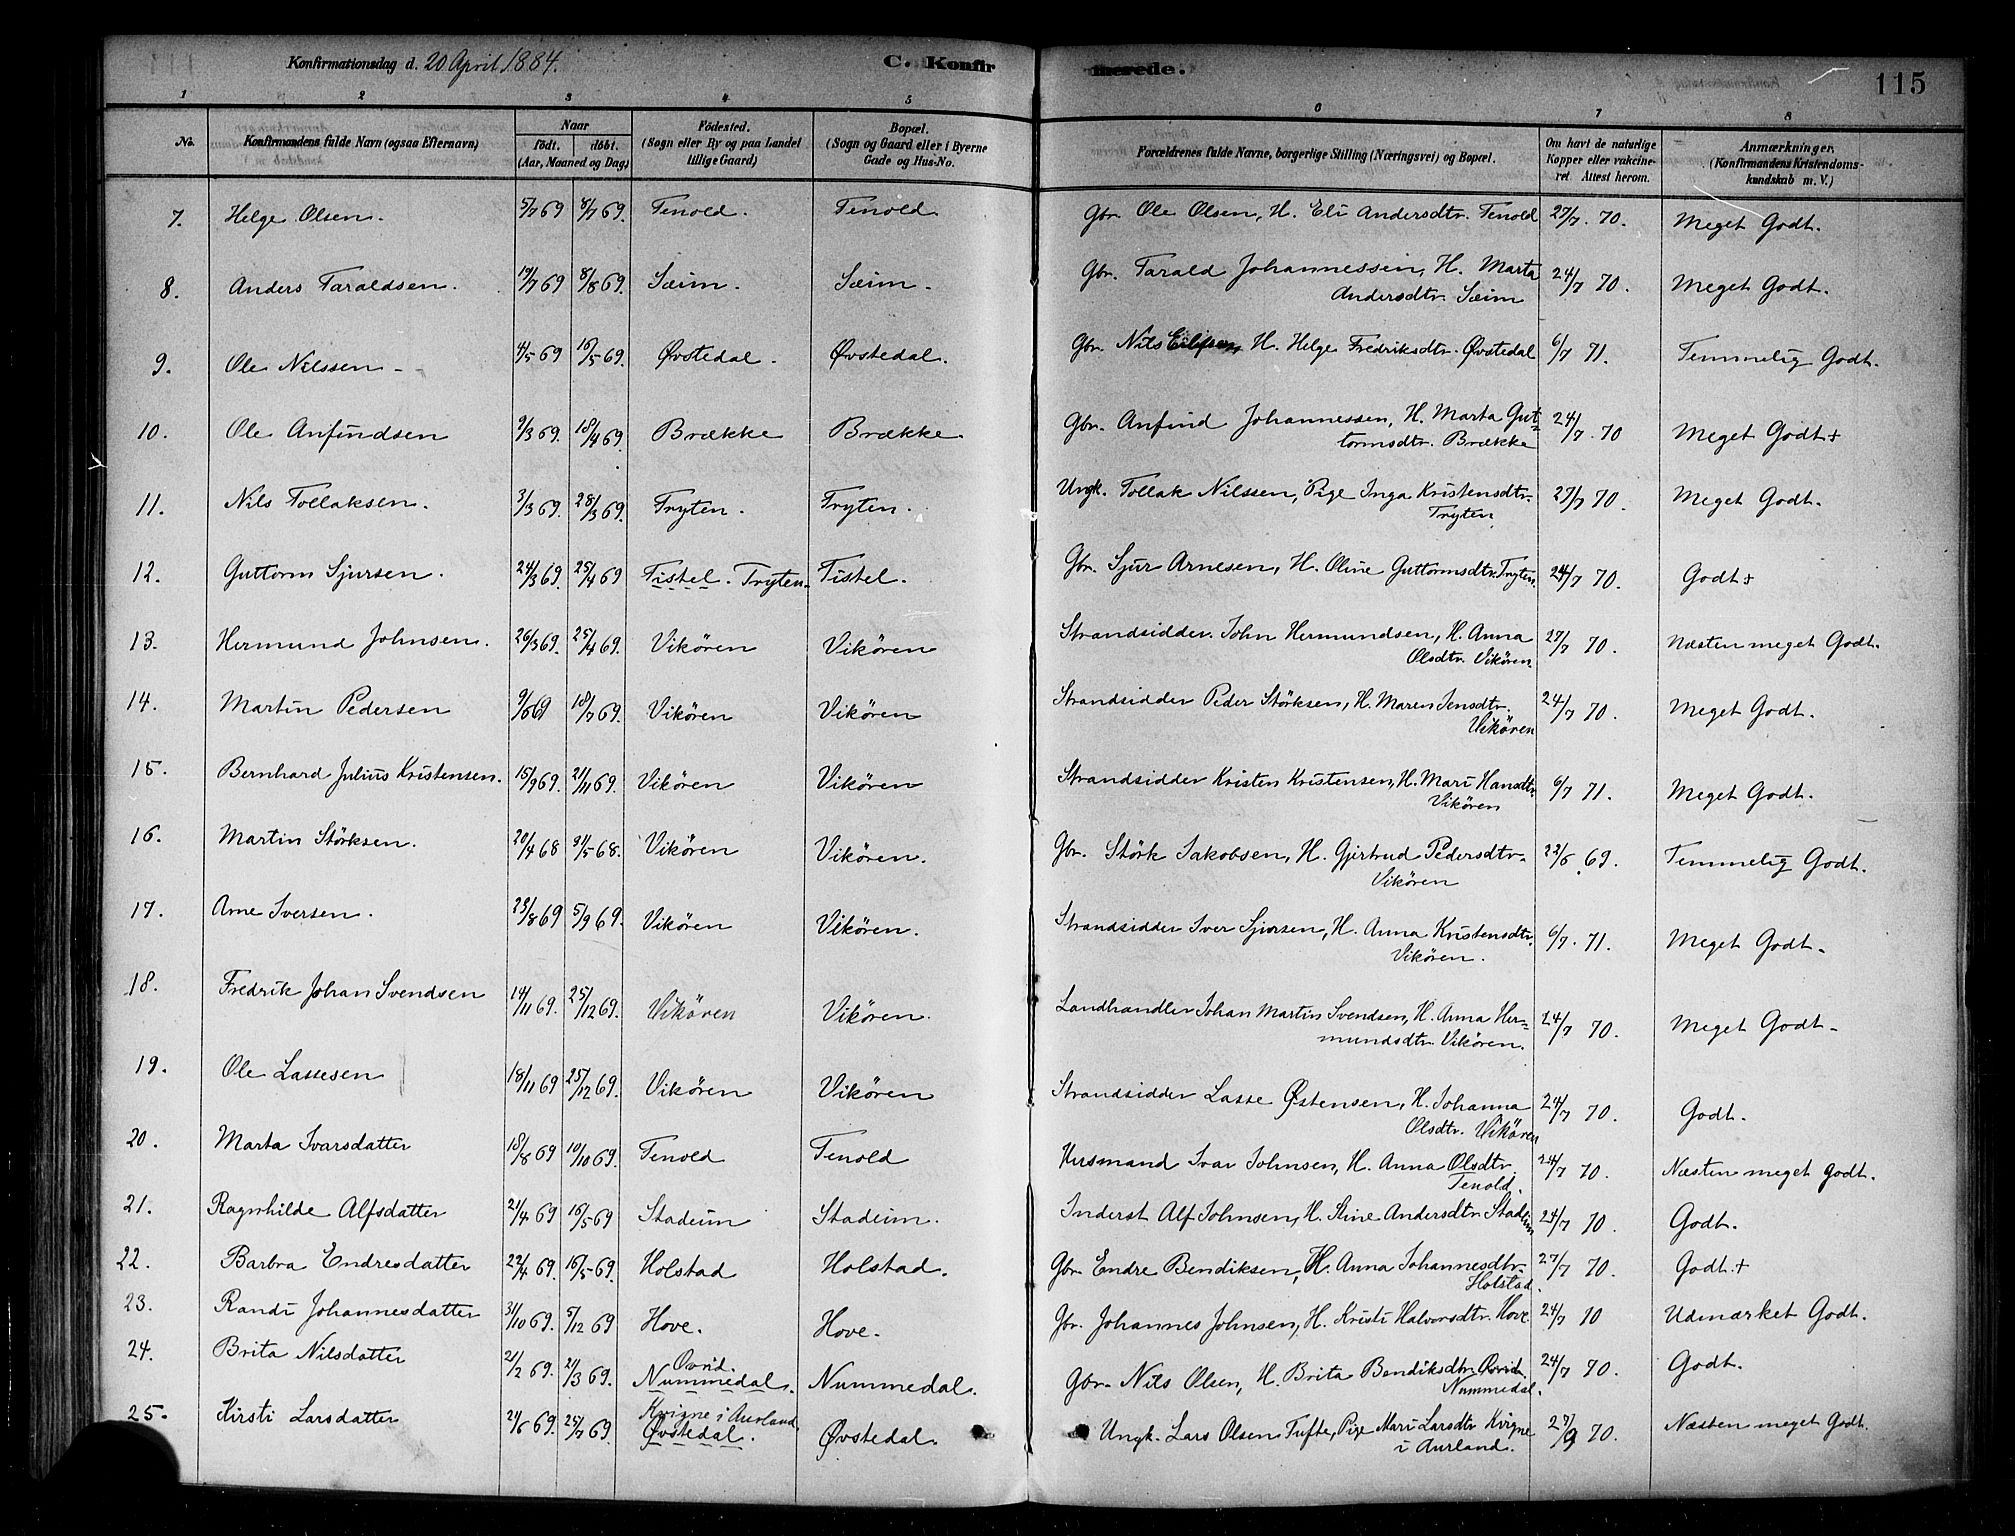 Konfirmationsdag d. 20 April 1884.
C. Konfirmerede.
115
1 2 3 4 5 6 7 8
No. Konfirmandens fulde Navn (ogsaa Efternavn) Naar født. døbt. (Aar, Maaned og Dag) Fødested. (Sogn eller By og paa Landet tillige Gaard) Bopæl. (Sogn og Gaard eller i Byerne Gade og Hus-No. Forældrenes fulde Navne, borgerlige Stilling (Næringsvei) og Bopæl. Om havt de naturlige Kopper eller vakcineret. Attest herom. Anmærkninger. (Konfirmandens Kristendomskundskab m. V.)
7. Helge Olsen. 5/7 69 8/7 69. Tenold. Tenold Gbr. Ole Olsen, H. Eli Andersdtr. Tenold 27/7. 70. Meget Godt.
8. Anders Taraldsen. 19/7 69 8/8 69. Sæim. Sæim. Gbr. Tarald Johannessen, H. Marta 24/7 70. Meget Godt.
Andersdtr. Sæim
9. Ole Nilssen 4/5 69 16/5 69. Øvstedal. Øvstedal. Gbr. Nils Eilifsen, H. Helge Fredriksdtr. Øvstedal 6/7 71. Temmelig Godt.
10. Ole Anfindsen 9/3 69. 18/4 69. Brække Brække. Gbr. Anfind Johannessen, H. Marta Gut- 24/7. 70 Meget Godt+
tormsdtr. Brække
11. Nils Tollaksen. 3/3 69. 28/3 69. Tryten. Tryten. Ungk. Tollak Nilssen, Pige Inga Kristensdtr. 27/7 70. Meget Godt.
Tryten
12. Guttorm Sjursen. 24/3 69. 25/4 69 Tistel. Tryten. Tistel. Gbr. Sjur Arnesen, H. Oline Guttormsdtr. Tryten. 24/7 70. Godt+
13. Hermund Johnsen. 26/3 69. 25/4 69. Vikören Vikören Strandsidder. John Hermundsen, H. Anna 27/7 70. Næsten meget Godt.
Olsdtr. Vikören.
14. Martin Pedersen 9/6 69 18/7 69. Vikören Vikören Strandsidder Peder Störksen, H. Maren Jensdtr. 24/7 70. Meget Godt.
Vikören
15. Bernhard Julius Kristensen. 15/9 69. 21/11 69. Vikören Vikören Strandsidder Kristen Kristensen, H. Mari Hansdtr. 6/7 71. Meget Godt.
Vikören
16. Martin Störksen. 20/4 68 31/5 68. Vikören Vikören. Gbr. Störk Jakobsen, H. Gjertrud Pedersdtr. 22/6. 69. Temmelig Godt.
Vikören
17. Arne Iversen. 23/8 69 5/9 69. Vikören Vikören. Strandsidder Iver Sjursen, H. Anna Kristensdtr. 6/7. 71. Meget Godt.
Vikören.
18. Fredrik Johan Svendsen 14/11 69. 25/12 69. Vikören Vikören. Landhandler Johan Martin Svendsen, H. Anna Her- 24/7 70. Meget Godt.
mundsdtr. Vikören.
19. Ole Lassesen 18/11 69 25/12 69. Vikören Vikören Strandsidder Lasse Østensen, H. Johanna 24/7 70. Godt.
Olsdtr. Vikören
20. Marta Ivarsdatter 18/8 69 10/10 69. Tenold Tenold Husmand Ivar Johnsen, H. Anna Olsdtr. 24/7 70. Næsten meget godt.
Tenold.
21. Ragnhilde Alfsdatter 21/4 69 16/5 69 Stadeim Stadeim. Inderst Alf Johnsen, H. Stine Andersdtr. Stadeim 24/7 70. Godt.
22. Barbra Endresdatter 22/4 69. 16/5 69. Holstad Holstad. Gbr. Endre Bendiksen, H. Anna Johannesdtr. 27/7 70. Godt.+
Holstad.
23. Randi Johannesdatter 31/10 69. 5/12 69 Hove. Hove. Gbr. Johannes Johnsen, H. Kristi Halvorsdtr. Hove 24/7 70 Udmærket Godt.
24. Brita Nilsdatter 21/2 69. 21/3 69. Ovrid. Nummedal. Nummedal. Gbr. Nils Olsen, H. Brita Bendiksdtr. Ovrid 24/7 70. Godt.
Nummedal.
25. Kirsti Larsdatter 21/6 69. 25/7 69 Kvigne i Aurland Øvstedal. Øvstedal. Ungk. Lars Olsen Tufte, Pige Mari Larsdtr Kvigne 27/9 70. Næsten meget Godt.
i Aurland.